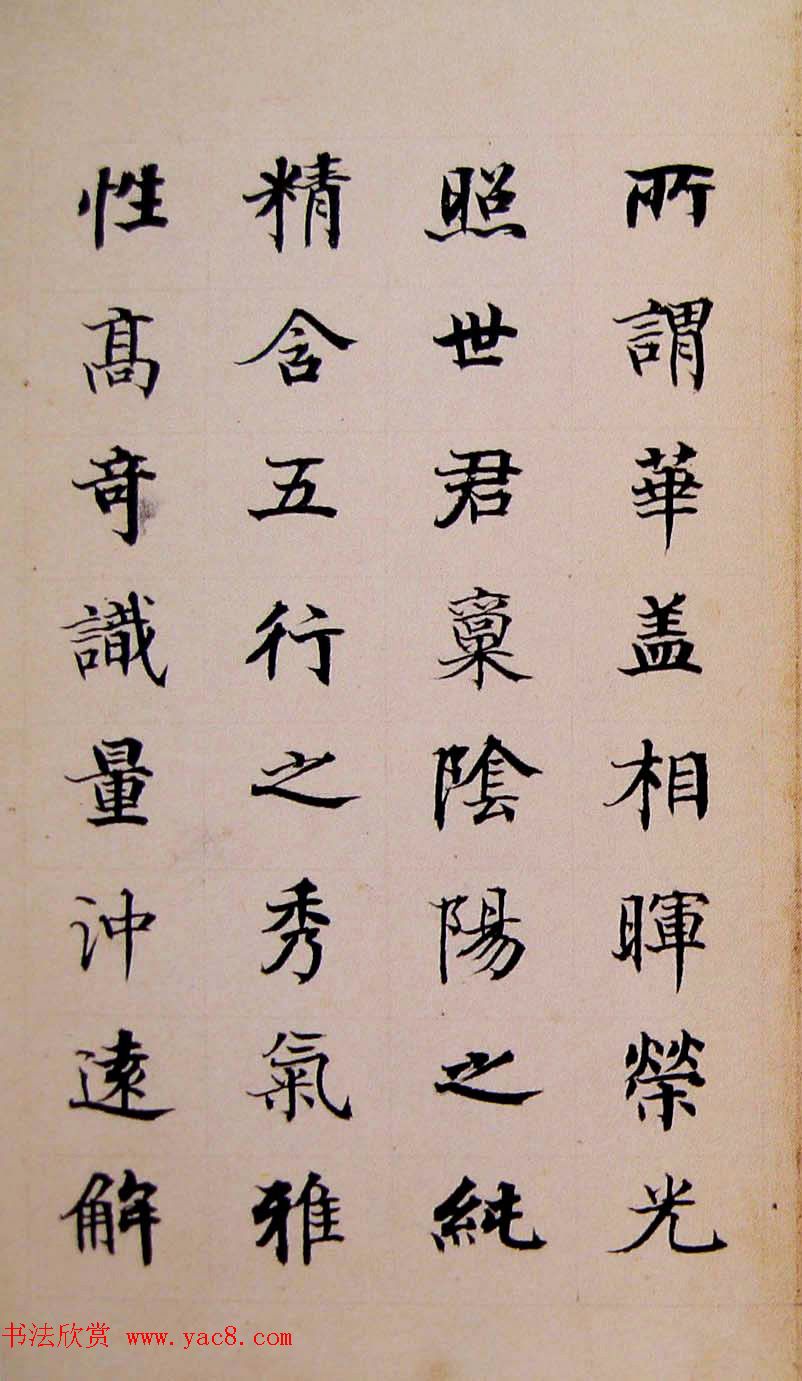 所謂華盖相暉榮光
照世君稟陰陽之純
精含五行之秀氣雅
性髙竒識量沖遠解
书法欣赏 www.yac8.com